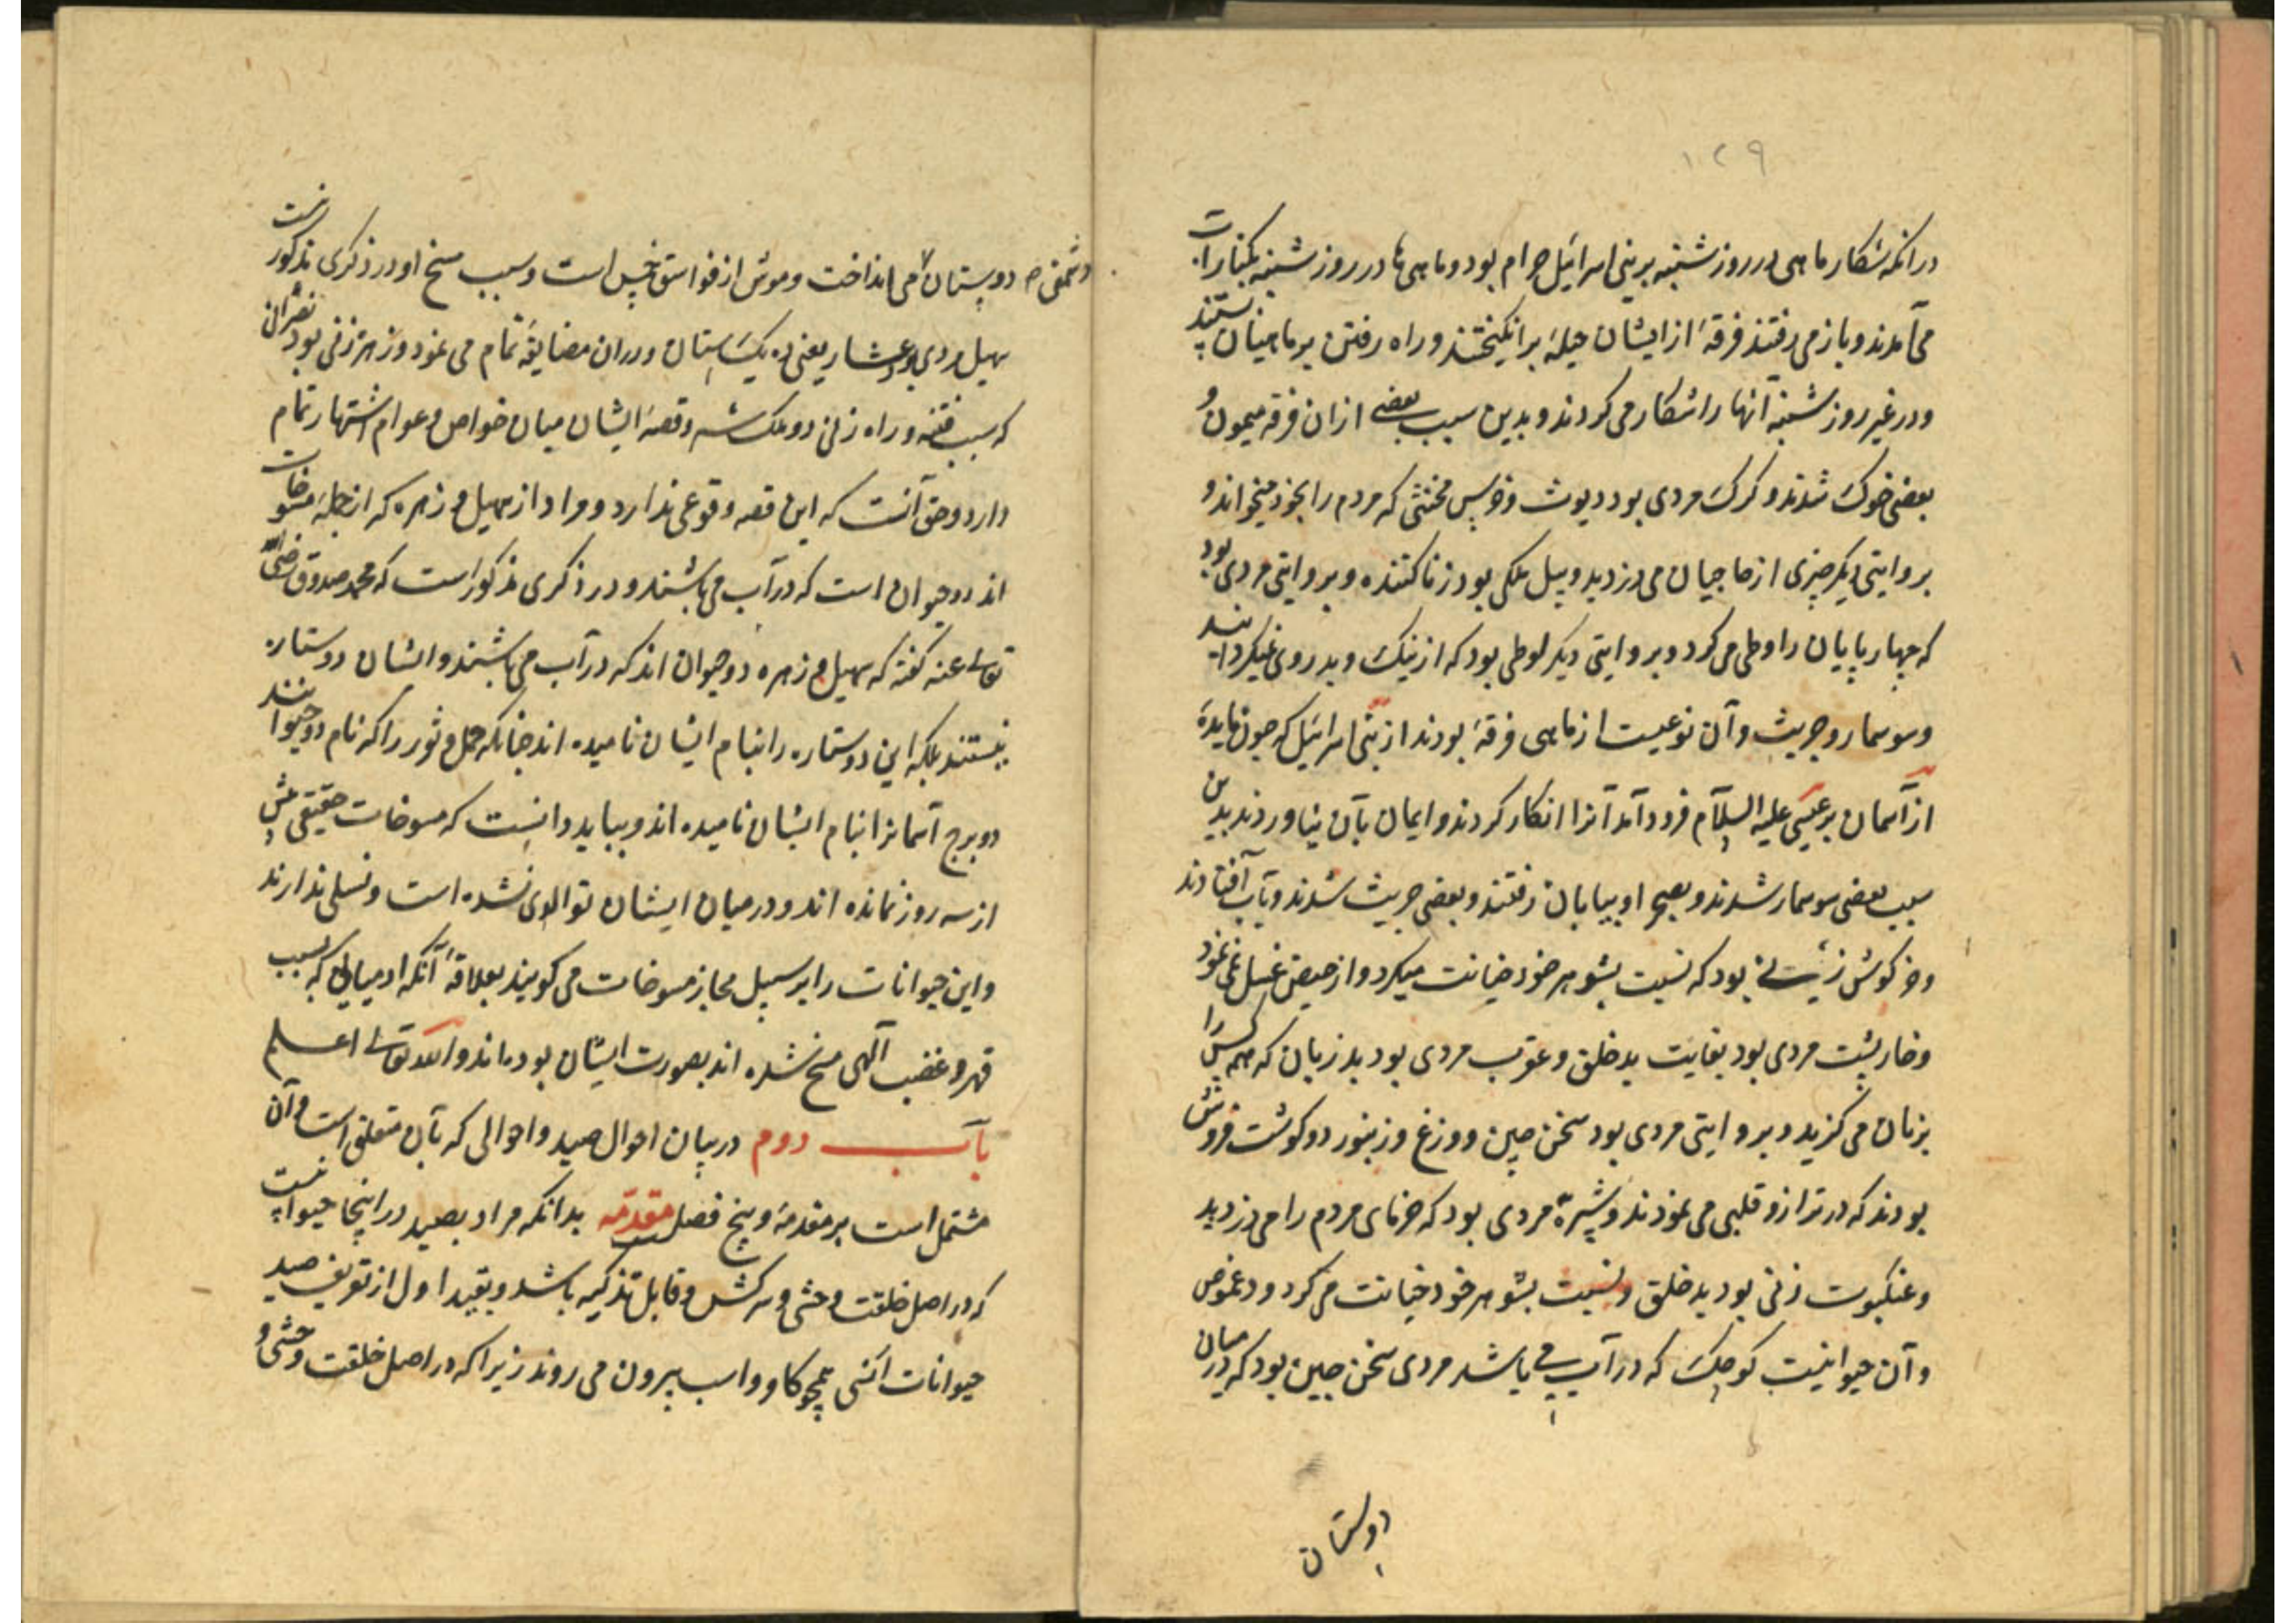 ۱۲۹
درانکه شکار ماهی در روز شنبه بر بنی اسرائیل حرام بود و ماهی ها در روز شنبه بکنار آب
می آمدند و باز می رفتند فرقهٔ از ایشان حیلهٔ برانکیختند و راه رفتن بر ماهیان بستند
و در غیر روز شنبه آنها را شکار می کردند و بدین سبب بعضی ازان فرقه میمون و
بعضی خوک شدند و کرک مردی بود دیوث و خرس مخنثی که مردم را بخود میخواند و
بروایتی دیکر چیزی از حاجیان می دزدید و پیل ملکی بود زناکننده و بروایتی مردی بود
که چهارپایان را وطی می کرد و بروایتی دیکر لوطی بود که از نیک و بد روی نمیکردانید
و سوسمار و جریث و آن نوعیست از ماهی فرقهٔ بودند از بنی اسرائیل که چون مایده
از آسمان بر عیسی علیه السلام فرود آمد آنرا انکار کردند و ایمان بآن نیاوردند بدین
سبب بعضی سوسمار شدند و بصحرا و بیابان رفتند و بعضی جریث شدند و بآب افتادند
و خرکوش زنی بود که نسبت بشوهر خود خیانت میکرد و از حیض غسل نمی نمود
و خارپشت مردی بود بغایت بدخلق و عقرب مردی بود بدزبان که همه کس را
بزبان می کزید و بروایتی مردی بود سخن چین و وزغ و زنبور دو کوشت فروش
بودند که در ترازو قلبی می نمودند و شپره مردی بود که خرمای مردم را می دزدید
و عنکبوت زنی بود بدخلق و نسبت بشوهر خود خیانت می کرد و دعموص
و آن حیوانیست کوچک که در آب می باشد مردی سخن چین بود که در میان
دوستان
دوستان دشمنی می انداخت و موش از فواسق است و سبب مسخ او در ذکری مذکور نیست
سهیل مردی بود عشار یعنی ده یک ستان و دران مضایقهٔ تمام می نمود و زهره زنی بود نصرانی
که سبب فتنه و راه زنی دو ملک شد و قصهٔ ایشان میان خواص و عوام اشتهار تمام
دارد و حق آنست که این قصه وقوعی ندارد و مراد از سهیل و زهره که از جملهٔ مسوخات
اند دو حیوان است که در آب می باشند و در ذکری مذکور است که محمد صدوق رضی الله
تعالی عنه کفته که سهیل و زهره دو حیوان اند که در آب می باشند و ایشان دو ستاره
نیستند بلکه این دو ستاره را بنام ایشان نامیده اند چنانکه حمل و ثور را که نام دو حیوانند
دو برج آسمانرا بنام ایشان نامیده اند و بباید دانست که مسوخات حقیقی بیش
از سه روز نمانده اند و در میان ایشان توالدی نشده است و نسلی ندارند
و این حیوانات را بر سبیل مجاز مسوخات می کویند بعلاقهٔ آنکه آدمیانی که بسبب
قهر و غضب الهی مسخ شده اند بصورت ایشان بوده اند والله تعالی اعلم
باب دوم در بیان احوال صید و احوالی که بآن متعلق است و آن
مشتمل است بر مقدمه و پنج فصل مقدمه بدانکه مراد بصید در اینجا حیوانیست
که در اصل خلقت وحشی و سرکش و قابل تذکیه باشد و بقید اول از تعریف صید
حیوانات انسی همچو کاو و اسب بیرون می روند زیرا که در اصل خلقت وحشی و